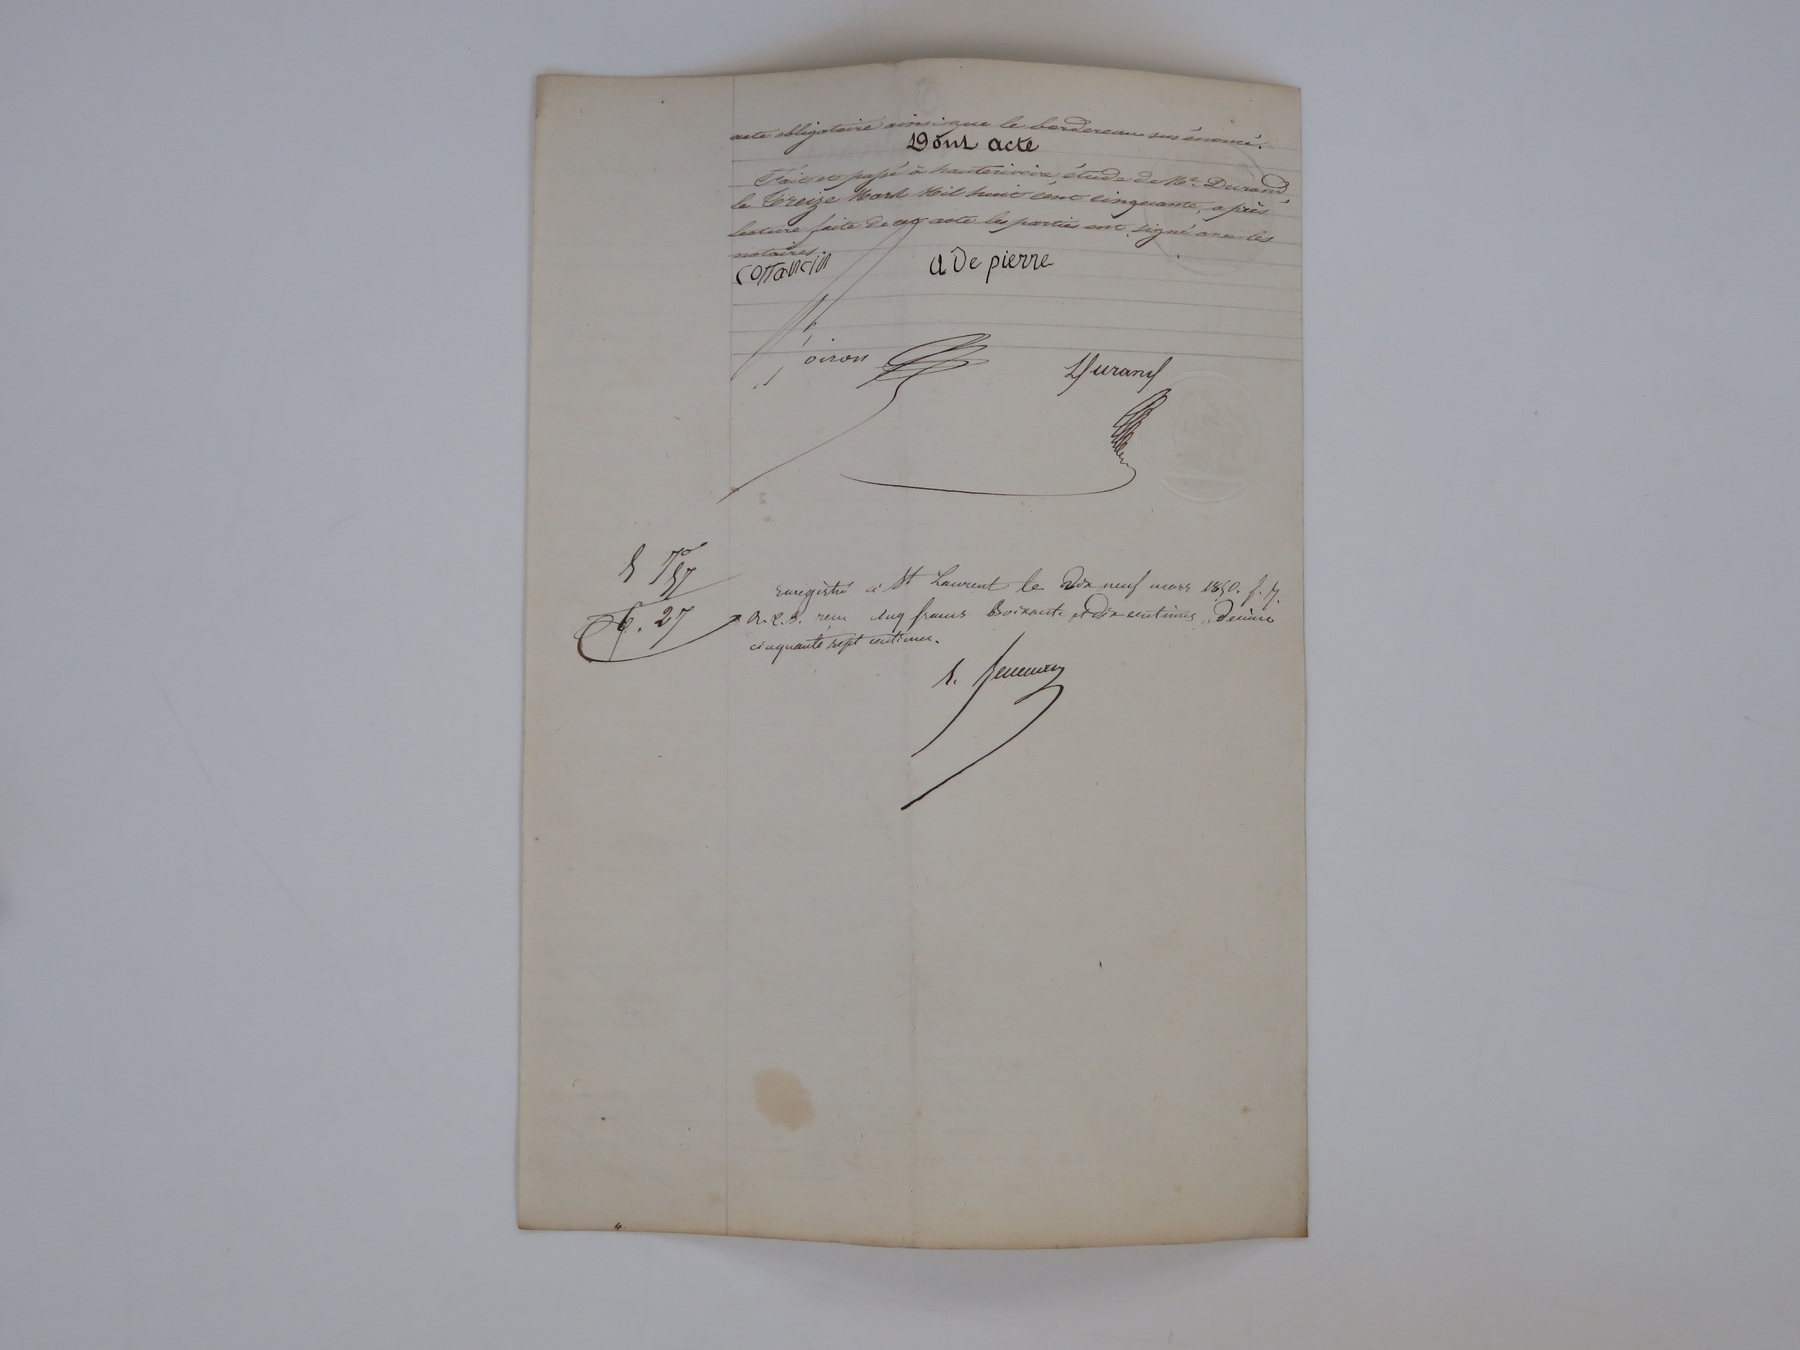 acte obligatoire ainsi que le bordereau sus énoncé.
Dont acte
Fait et passé à hauterivoire étude de Me. Durand,
le treize Mars Mil huit cent cinquante, après
lecture faite de cet acte les parties ont signé avec les
notaires
A De pierre
oiron
Durand
5 70
57
6. 27
Enregistré à St Laurent le Dix neuf mars 1850. f. 7.
reçu cinq francs Soixante et Dix centimes, Décime
cinquante sept centimes.